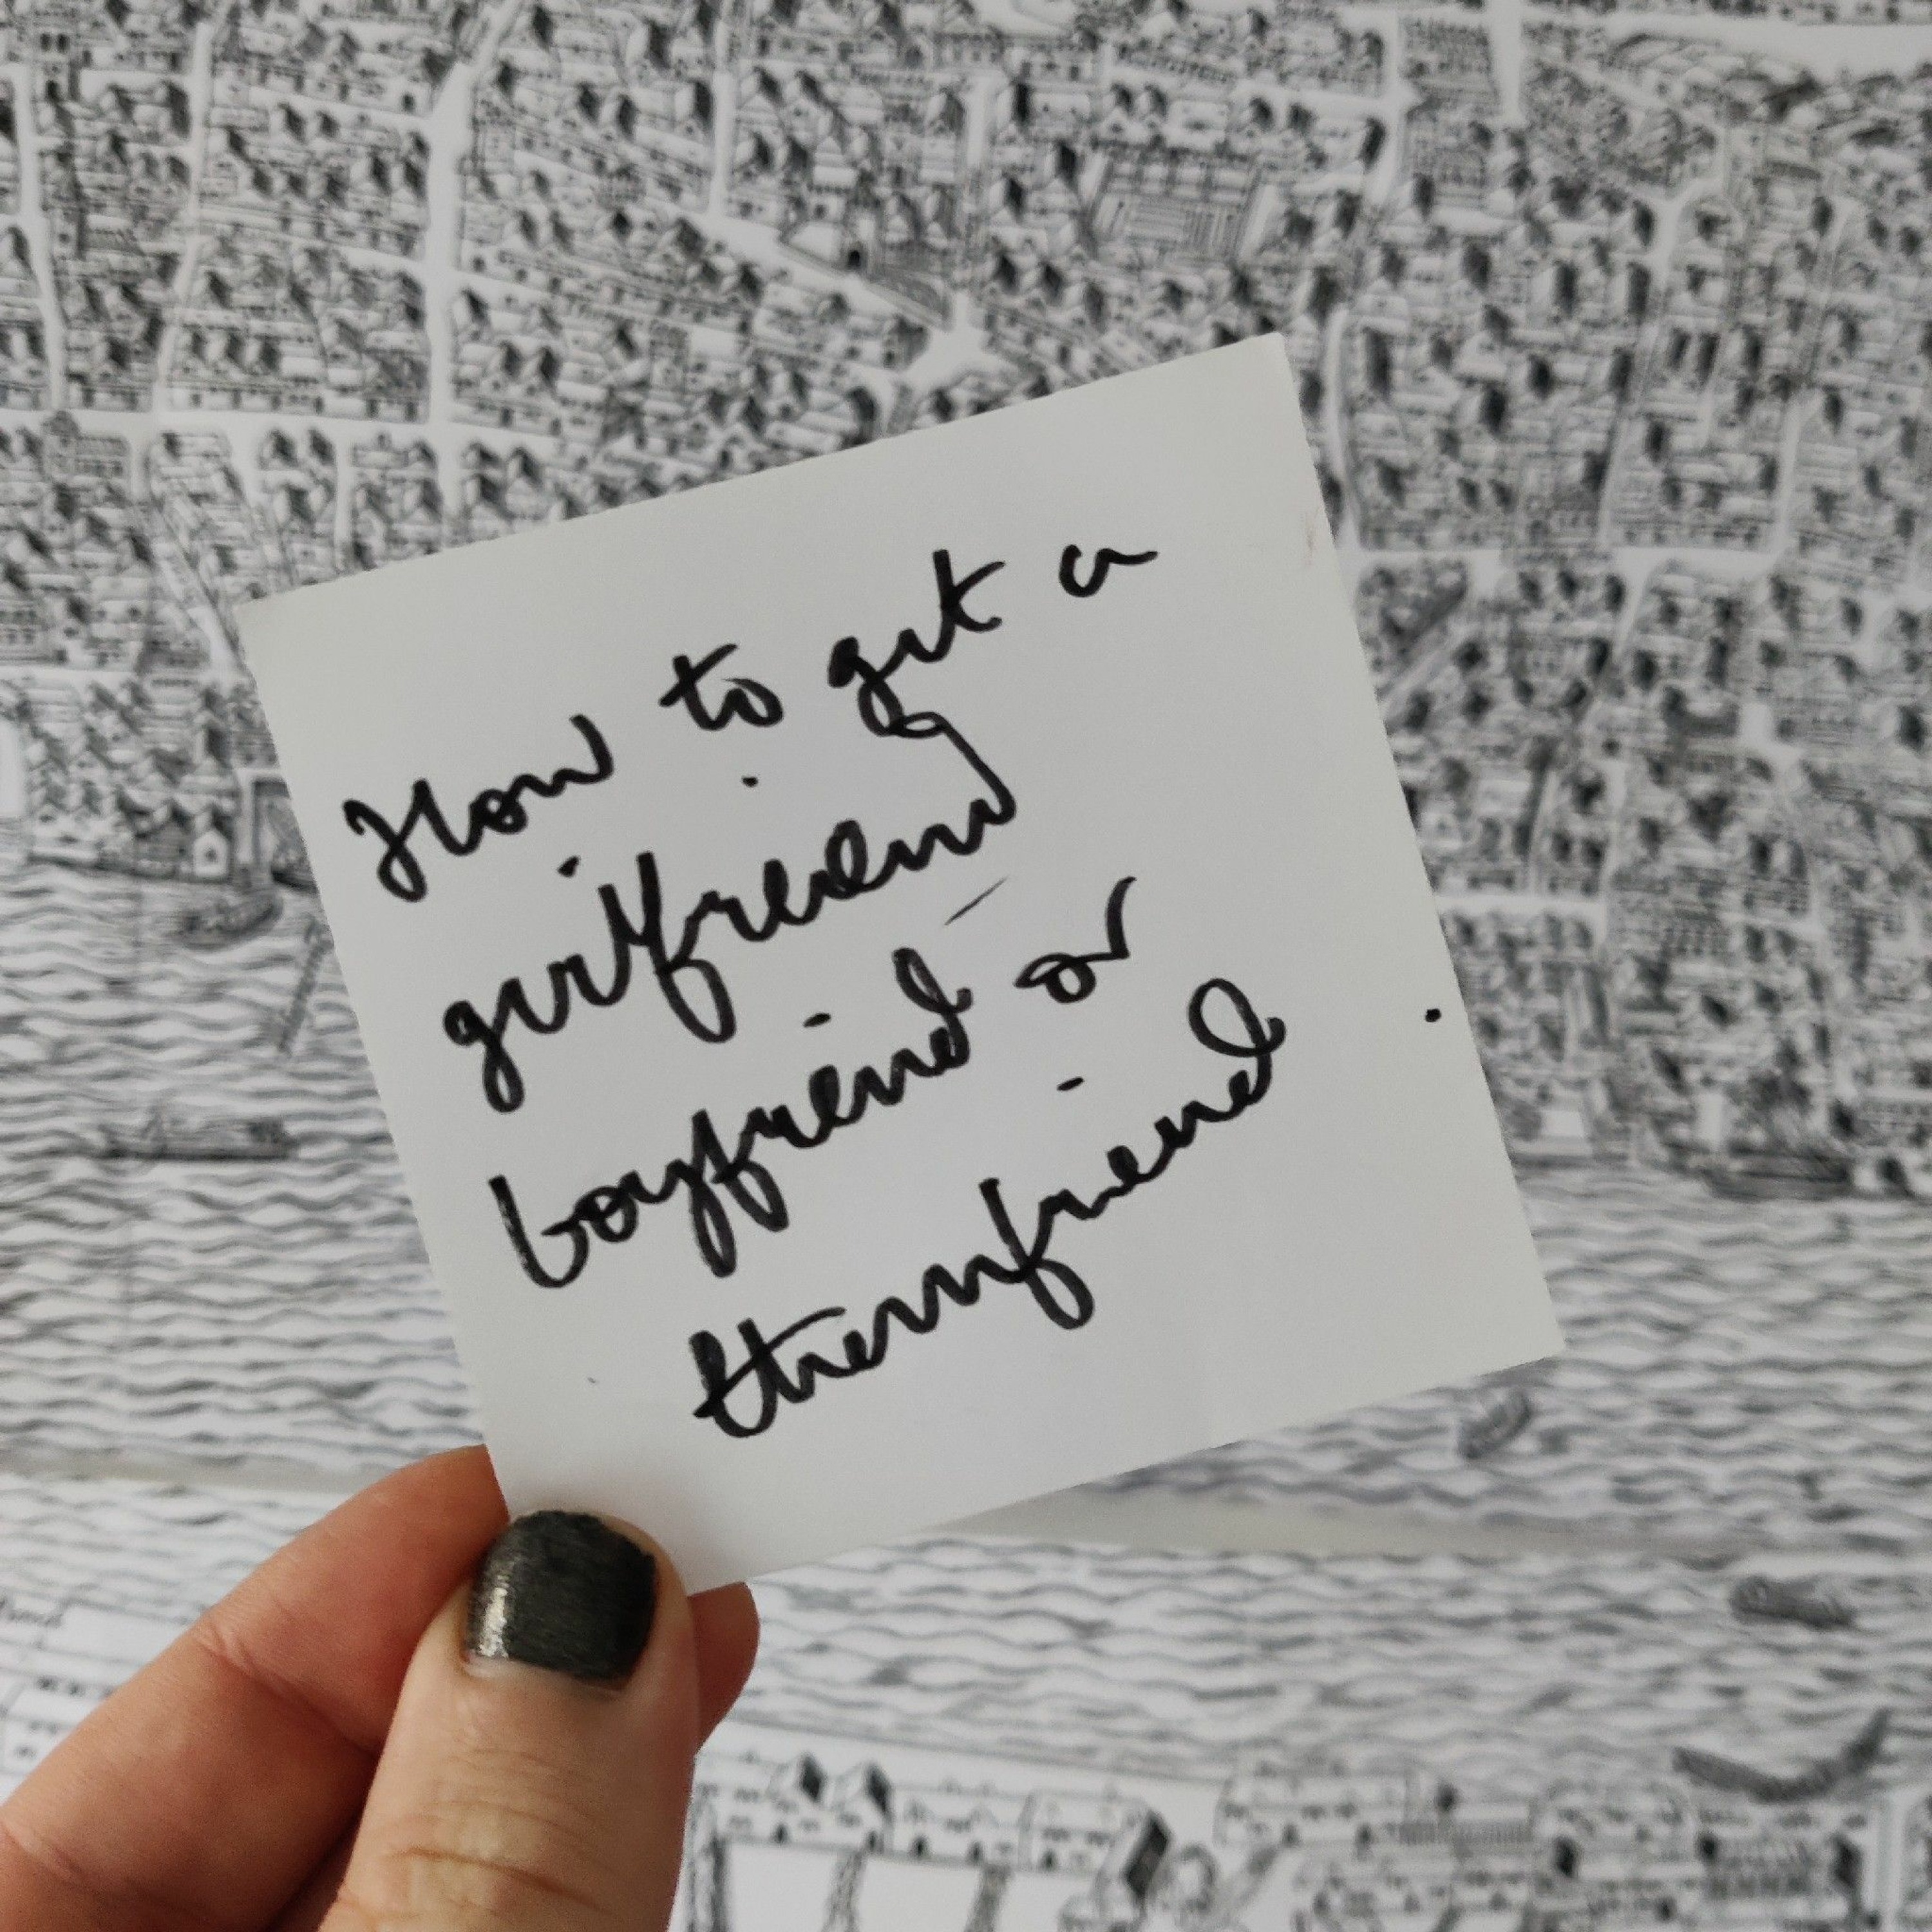 How to get a
girlfriend
boyfriend or
themfriend